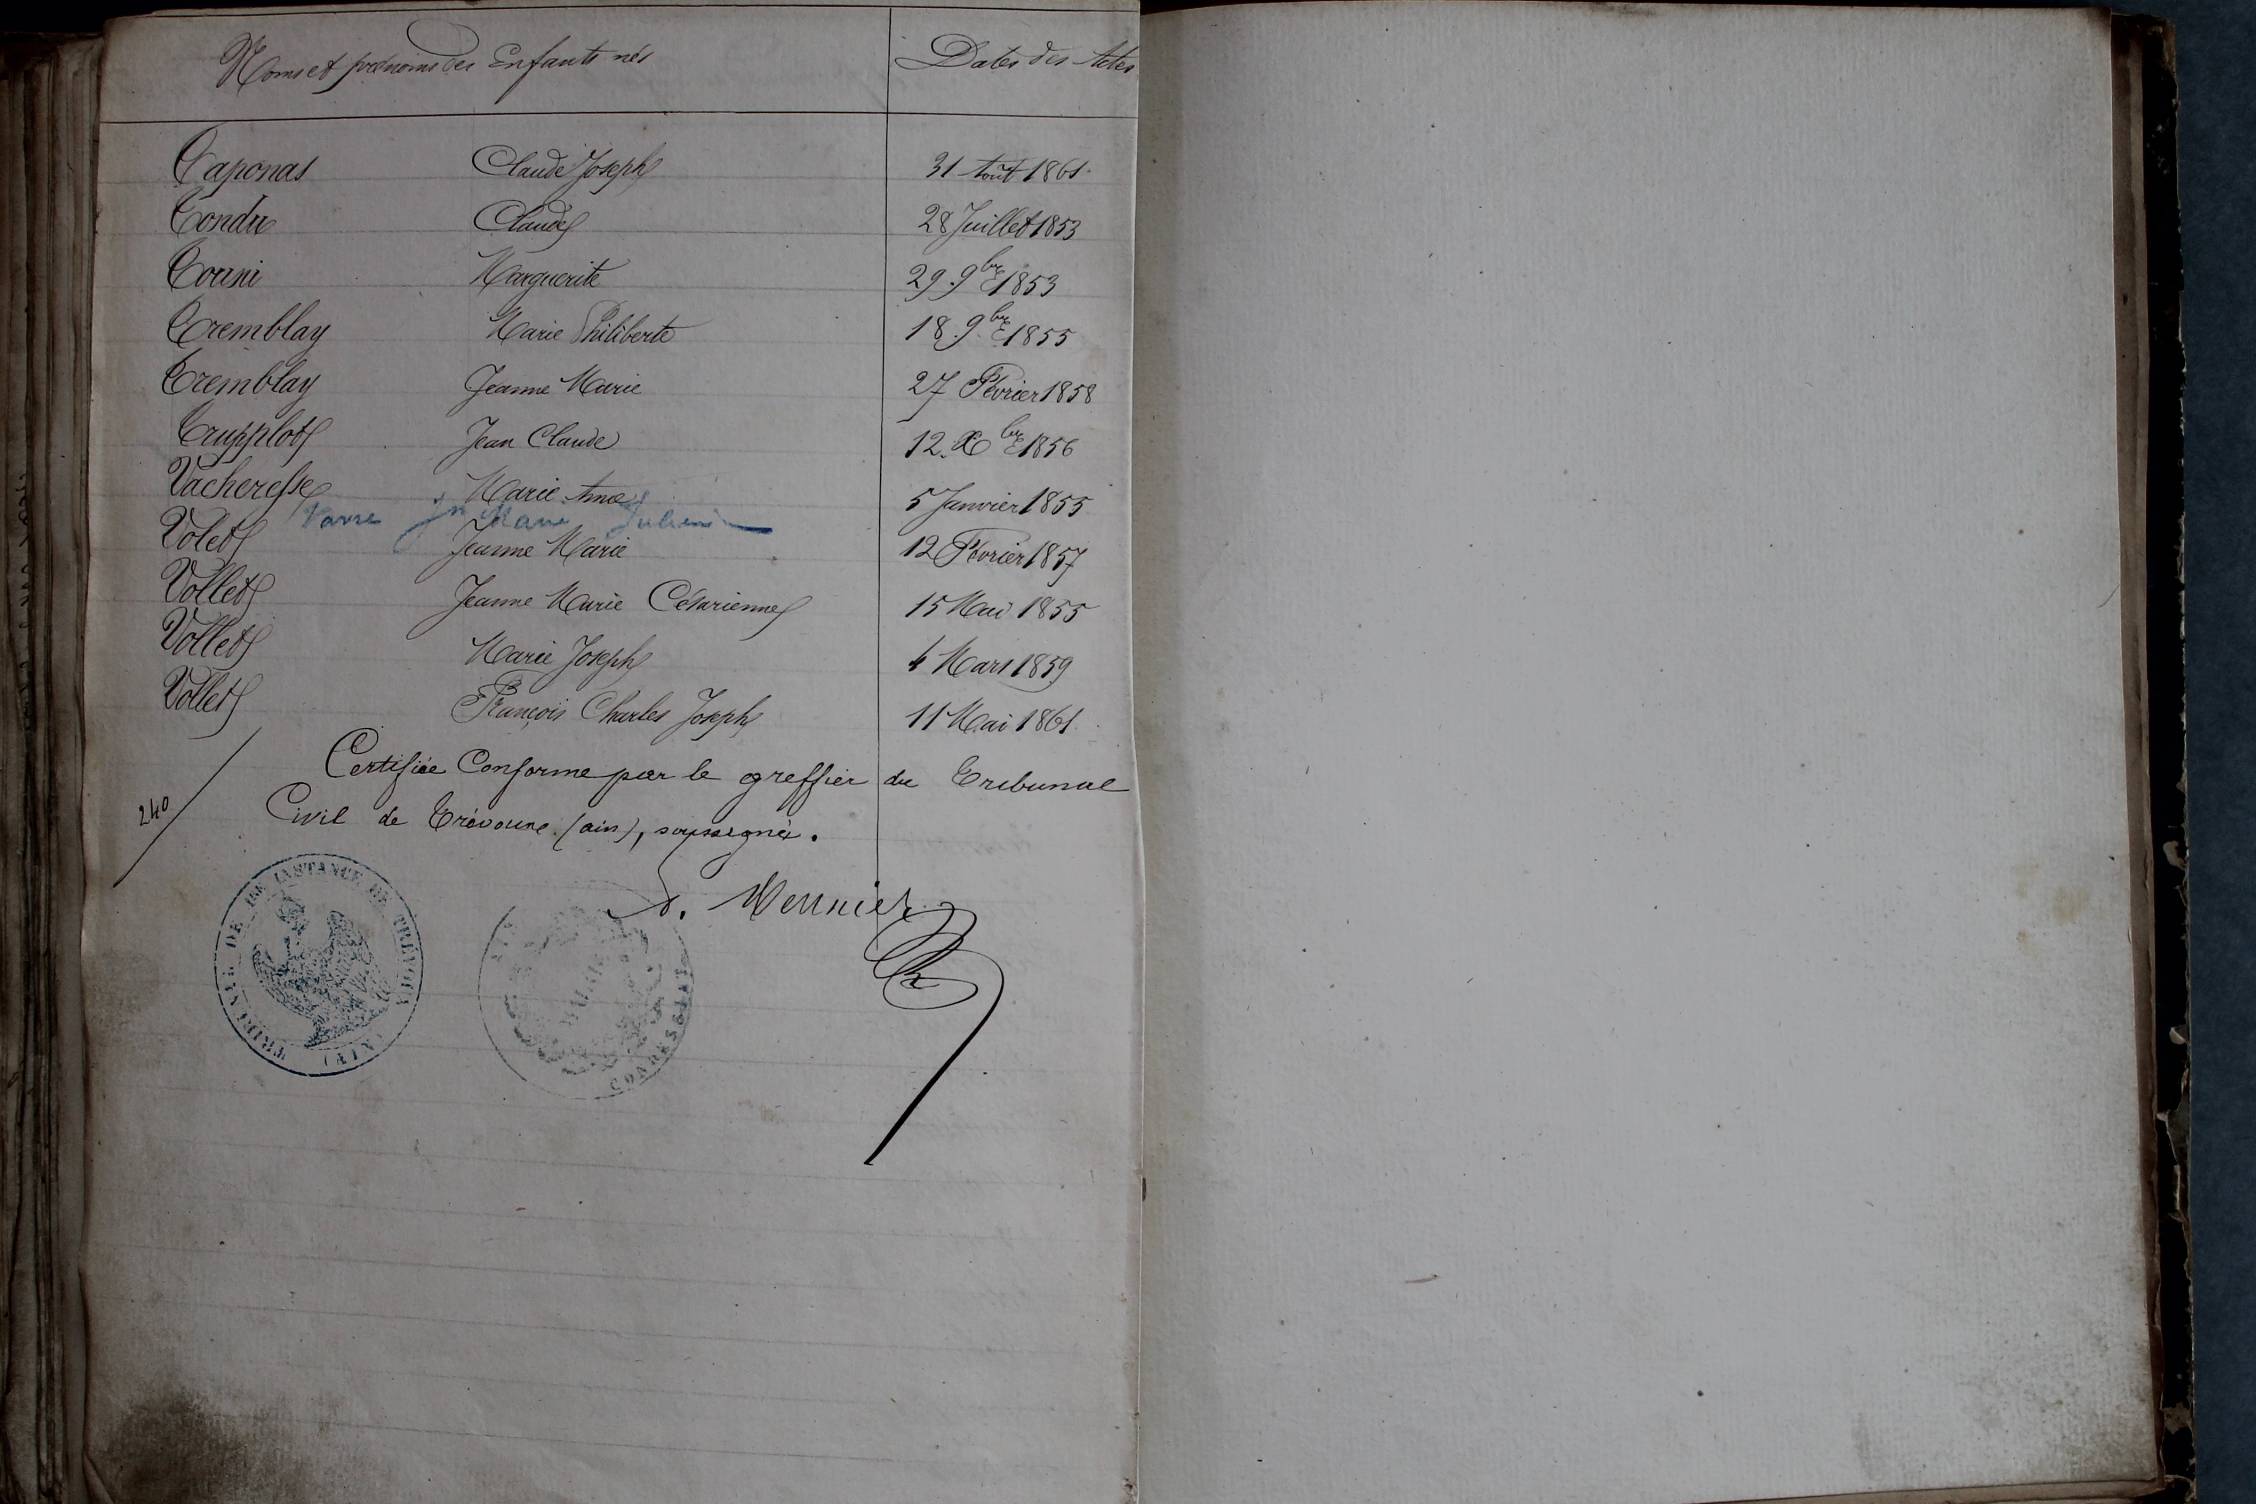 Noms et prénoms des Enfants nés Dates des Actes
Taponas Claude Joseph 31 Août 1861
Tondu Claude 28 Juillet 1853
Marguerite 29 9bre 1853
Tremblay Marie Philiberte 18 9bre 1855
Tremblay Jeanne Marie 27 Février 1858
Trupplot Jean Claude 12 Xbre 1856
Vacheresse Marie Anne 5 Janvier 1855
Marie
Volet Jeanne Marie 12 Février 1857
Vollet Jeanne Marie Césarienne 15 Mai 1855
Vollet Marie Joseph 4 Mars 1859
Vollet François Charles Joseph 11 Mai 1861
Certifiée Conforme par le greffier du Tribunal
Civil de Trévoux (ain), soussigné.
240
Meunier
TRIBUNAL DE 1RE INSTANCE DE TRÉVOUX
(AIN)